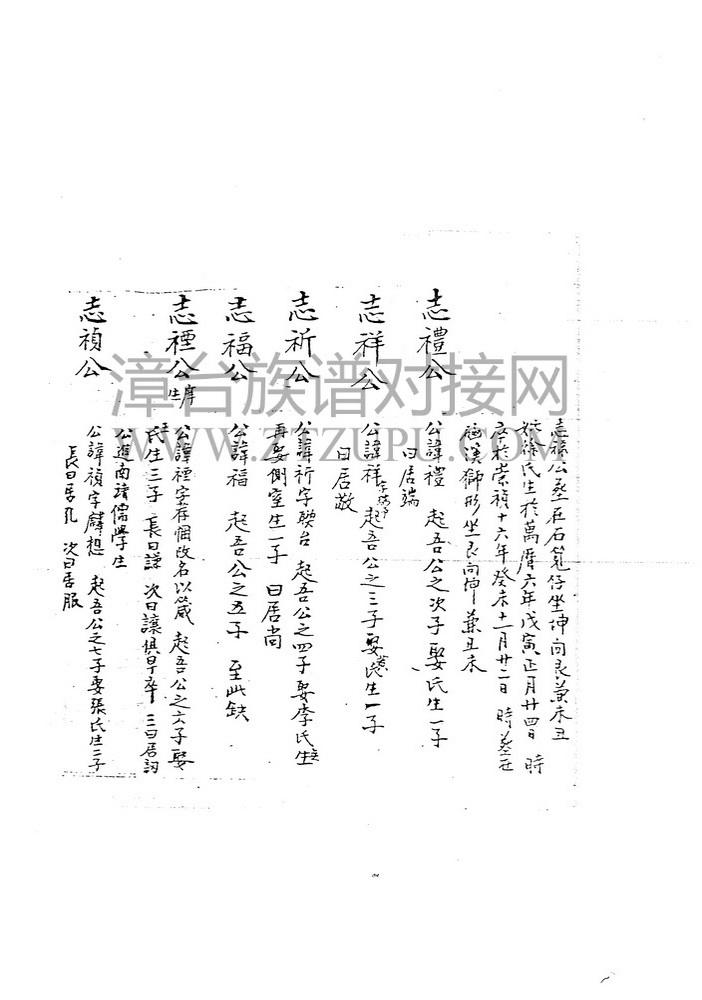 志祿公葬在石筧仔坐坤向艮兼未丑
妣徐氏生於萬曆六年戊寅正月廿四日 時
卒於崇禎十六年癸未十一月廿二日 時葬在
獅形坐艮向坤兼丑未
志禮公
公諱禮 起吾公之次子娶氏生一子
曰居端
志祥公
公諱祥 起吾公之三子娶黃氏生一子
曰居敬
志祈公
公諱祈字聯台 起吾公之四子娶李氏生
再娶側室生一子 曰居尚
志福公
公諱福 起吾公之五子 至此缺
志禋公 庠生
公諱禋字存個改名以箴 起吾公之六子娶
氏生三子 長曰謙 次曰讓俱早卒 三曰居訒
公進南靖儒學生
志禎公
公諱禎字麟想 起吾公之七子娶張氏生二子
長曰居孔 次曰居服
漳台族谱对接网
WWW.ZTZUPU.COM